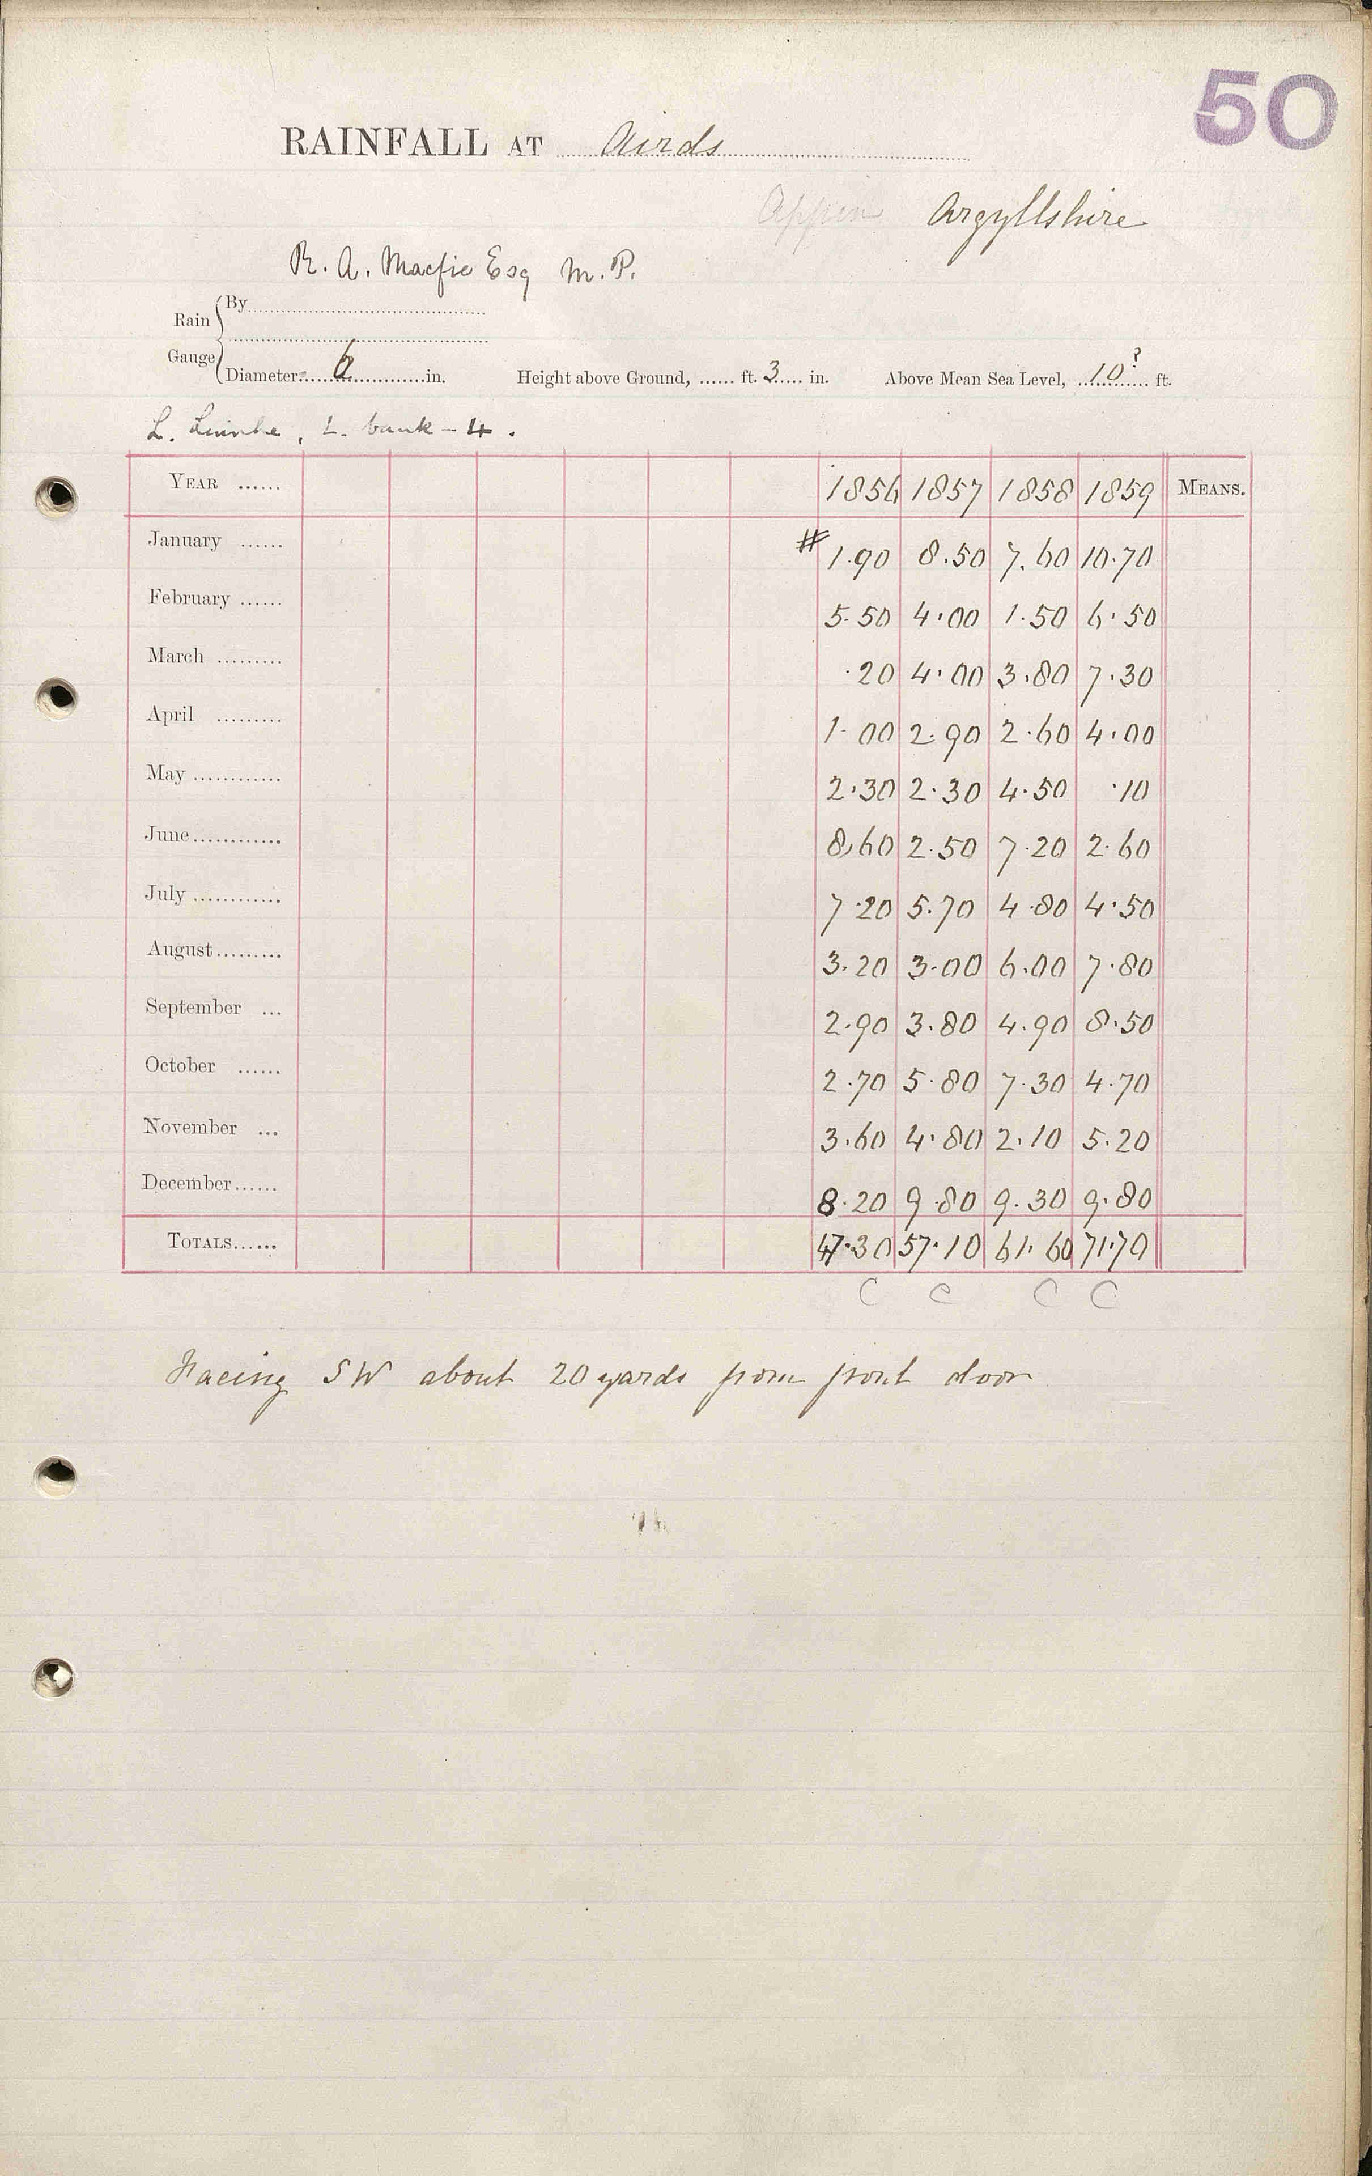 50
RAINFALL AT Airds
Appin Argyllshire
R. A. Macfie Esq M.P.
Rain Gauge By
Diameter 6 in. Height above Ground, ...... ft. 3 in. Above Mean Sea Level, 10? ft.
L. Linnhe, L. bank - 4.
YEAR ...... 1856 1857 1858 1859 MEANS.
January ...... # 1.90 8.50 7.60 10.70
February ...... 5.50 4.00 1.50 6.50
March ......... .20 4.00 3.80 7.30
April ......... 1.00 2.90 2.60 4.00
May ............ 2.30 2.30 4.50 .10
June............ 8.60 2.50 7.20 2.60
July ............ 7.20 5.70 4.80 4.50
August......... 3.20 3.00 6.00 7.80
September ... 2.90 3.80 4.90 8.50
October ...... 2.70 5.80 7.30 4.70
November ... 3.60 4.80 2.10 5.20
December...... 8.20 9.80 9.30 9.80
TOTALS...... 47.30 57.10 61.60 71.70
C C C C
Facing SW about 20 yards from front door